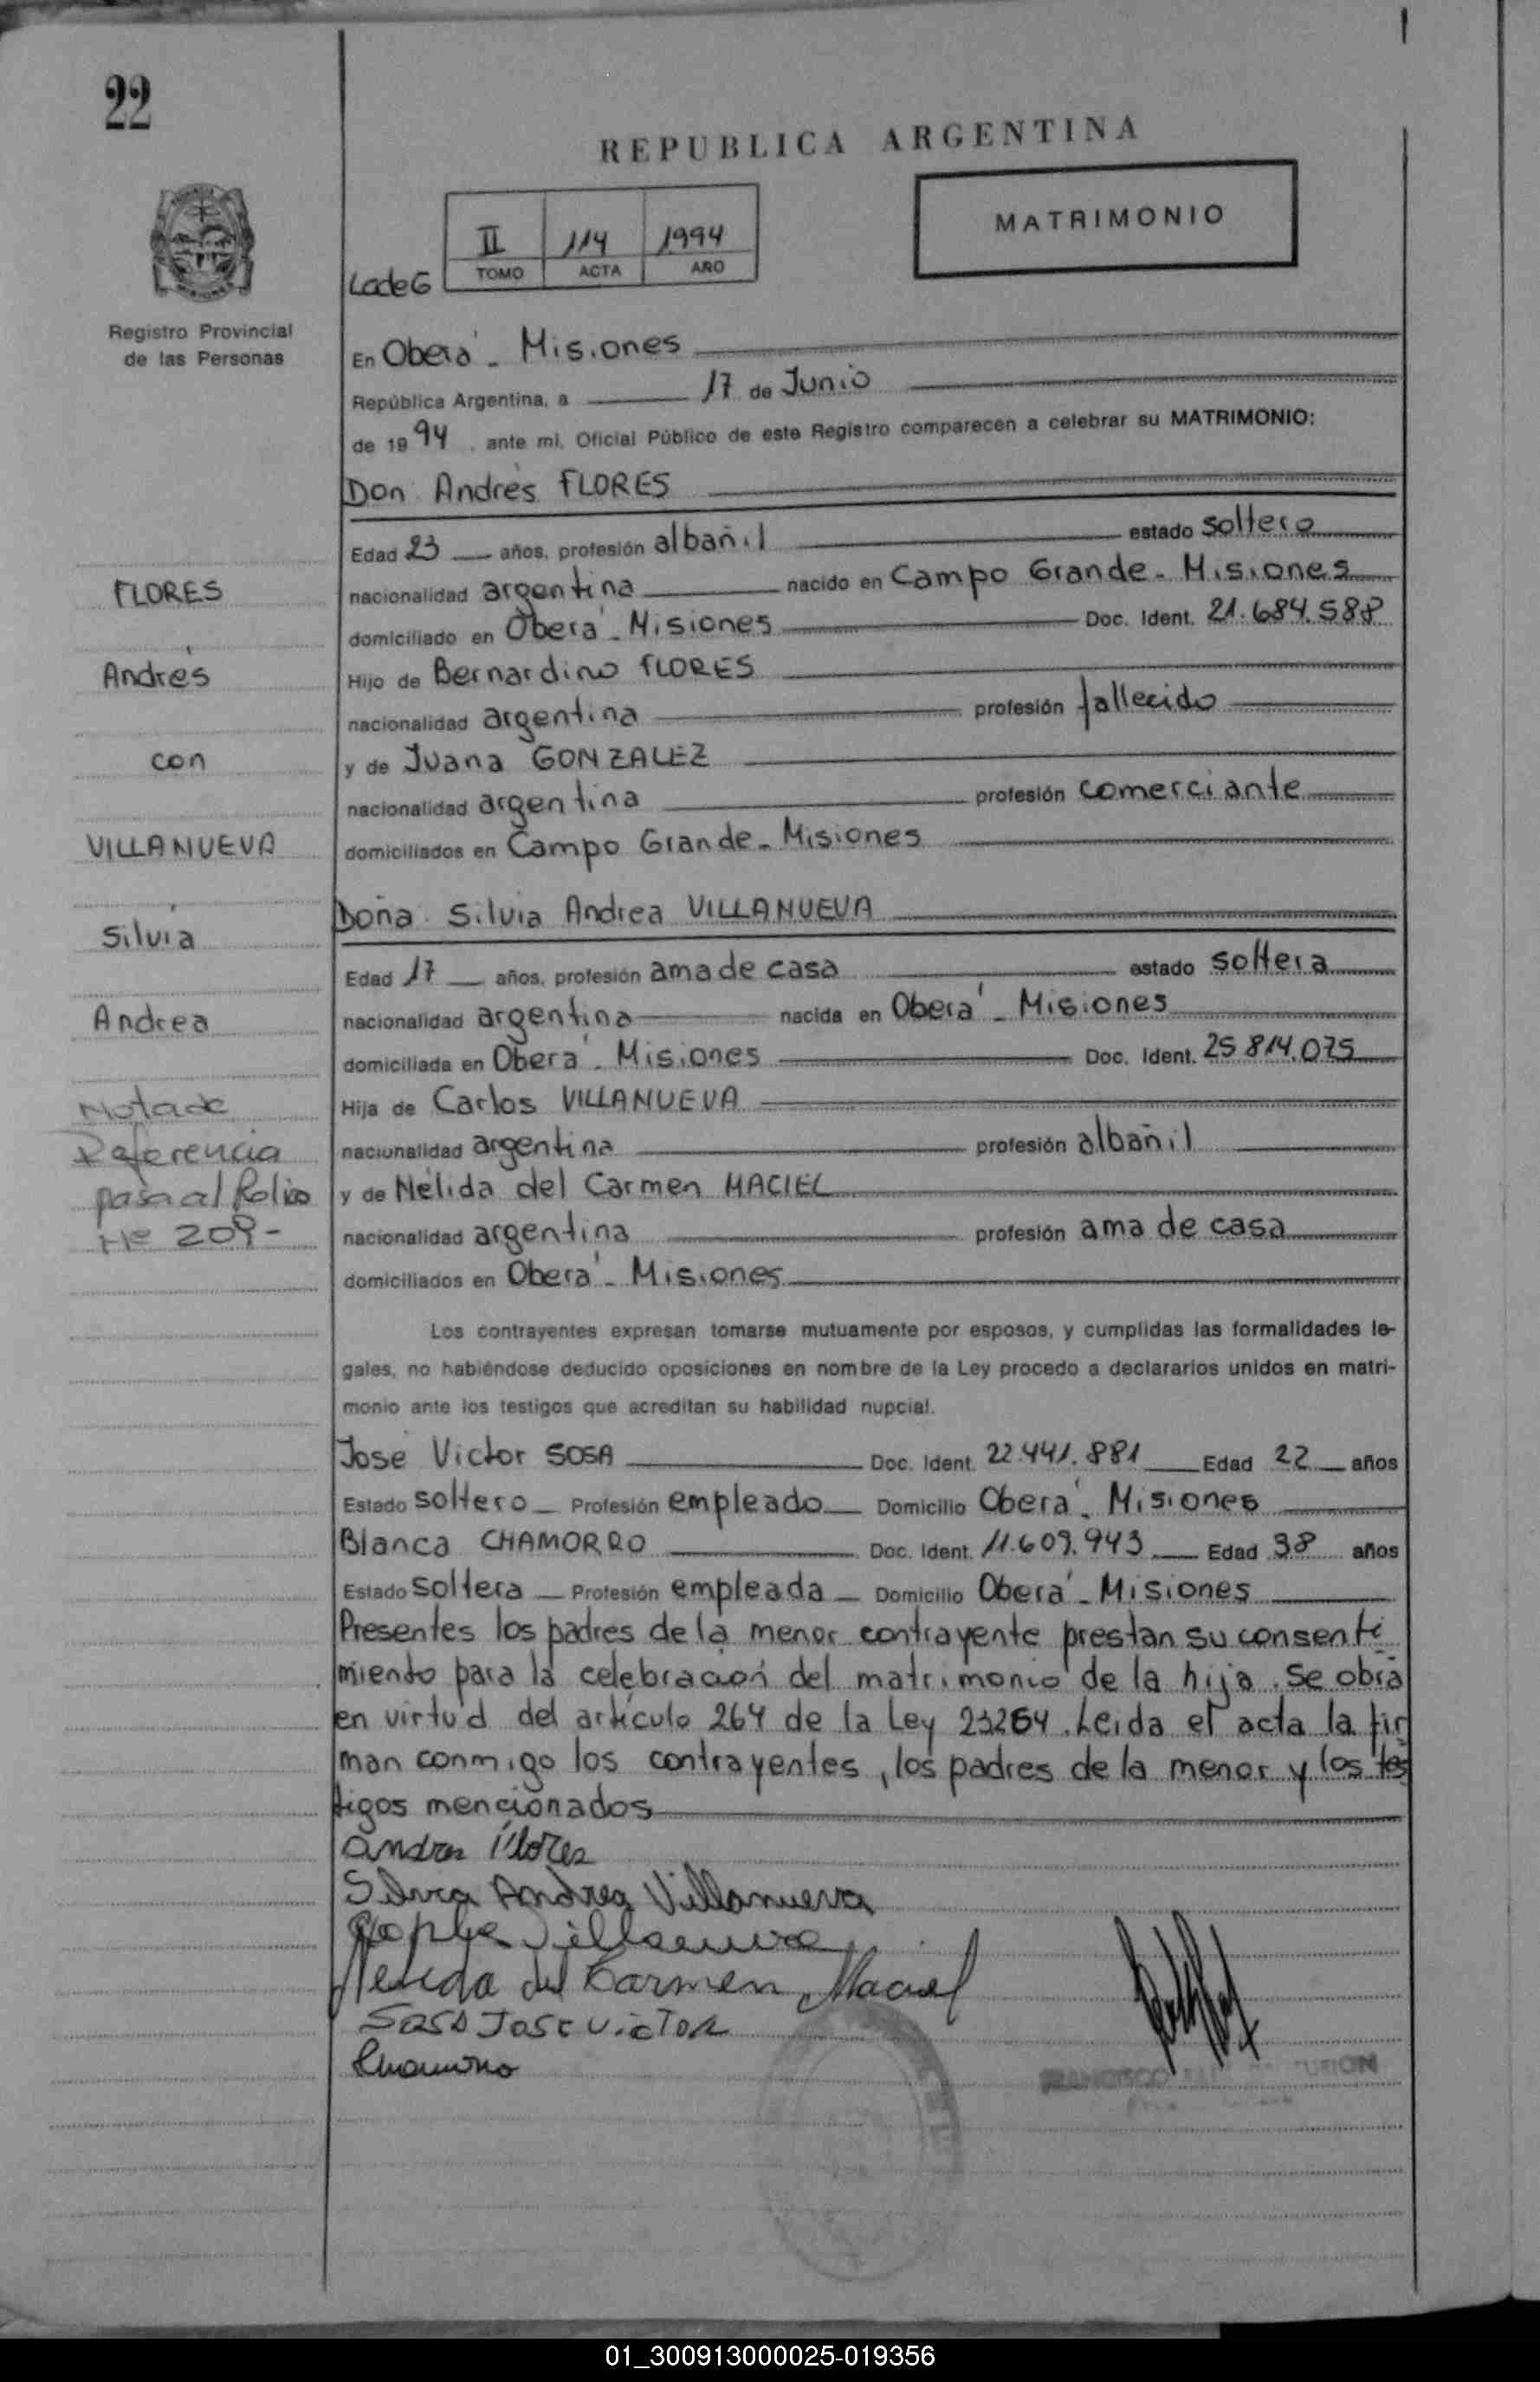 22
REPUBLICA ARGENTINA
II 114 1994
TOMO ACTA AÑO
MATRIMONIO
LadeG
Registro Provincial
de las Personas
En Oberá - Misiones
República Argentina, a 17 de Junio
de 1994, ante mi, Oficial Público de este Registro comparecen a celebrar su MATRIMONIO:
Don Andrés FLORES
Edad 23 años, profesión albañil estado soltero
nacionalidad argentina nacido en Campo Grande - Misiones
domiciliado en Oberá - Misiones Doc. Ident. 21.684.588
Hijo de Bernardino FLORES
nacionalidad argentina profesión fallecido
y de Juana GONZALEZ
nacionalidad argentina profesión comerciante
domiciliados en Campo Grande - Misiones
Doña Silvia Andrea VILLANUEVA
Edad 17 años, profesión ama de casa estado soltera
nacionalidad argentina nacida en Oberá - Misiones
domiciliada en Oberá - Misiones Doc. Ident. 25 814.075
Hija de Carlos VILLANUEVA
nacionalidad argentina profesión albañil
y de Nélida del Carmen MACIEL
nacionalidad argentina profesión ama de casa
domiciliados en Oberá - Misiones
FLORES
Andrés
con
VILLANUEVA
Silvia
Andrea
Nota de
Referencia
pasa al Folio
Nº 209-
Los contrayentes expresan tomarse mutuamente por esposos, y cumplidas las formalidades le-
gales, no habiéndose deducido oposiciones en nombre de la Ley procedo a declararlos unidos en matri-
monio ante los testigos que acreditan su habilidad nupcial.
José Victor SOSA Doc. Ident. 22.441.881 Edad 22 años
Estado soltero Profesión empleado Domicilio Oberá - Misiones
Blanca CHAMORRO Doc. Ident. 11.609.943 Edad 38 años
Estado soltera Profesión empleada Domicilio Oberá - Misiones
Presentes los padres de la menor contrayente prestan su consenti
miento para la celebración del matrimonio de la hija. Se obra
en virtud del artículo 264 de la Ley 23264. Leida el acta la fir
man conmigo los contrayentes, los padres de la menor y los tes
tigos mencionados
Andres Flores
Silvia Andrea Villanueva
Villanueva
Nelida del Carmen Maciel
Sosa Jose Victor
Chamorro
FRANCISCO
01_300913000025-019356